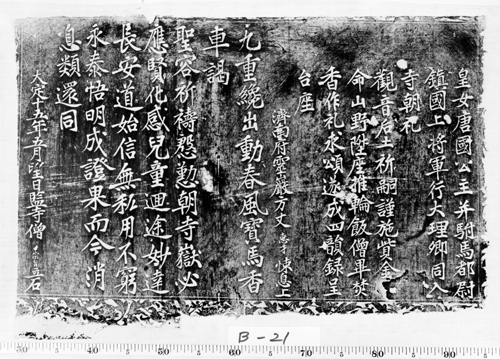 皇女唐國公主并駙馬都尉
鎮國上將軍行大理卿同
寺朝礼
觀音居士祈嗣謹施貲金
命山野陞座推輪飯僧畢焚
香作礼求頌遂成四韻録呈
台座
濟南府靈巖方丈 悚息上
九重纔出動春風寶馬香
車謁
聖容祈禱懃朝寺嶽必
應賢化感兒童迴途妙達
長安道始信無私用不窮
永泰悟明成證果而今消
息類還同
大定十五年五月望日監寺僧 立石
B-21
30 40 50 60 70 80 90